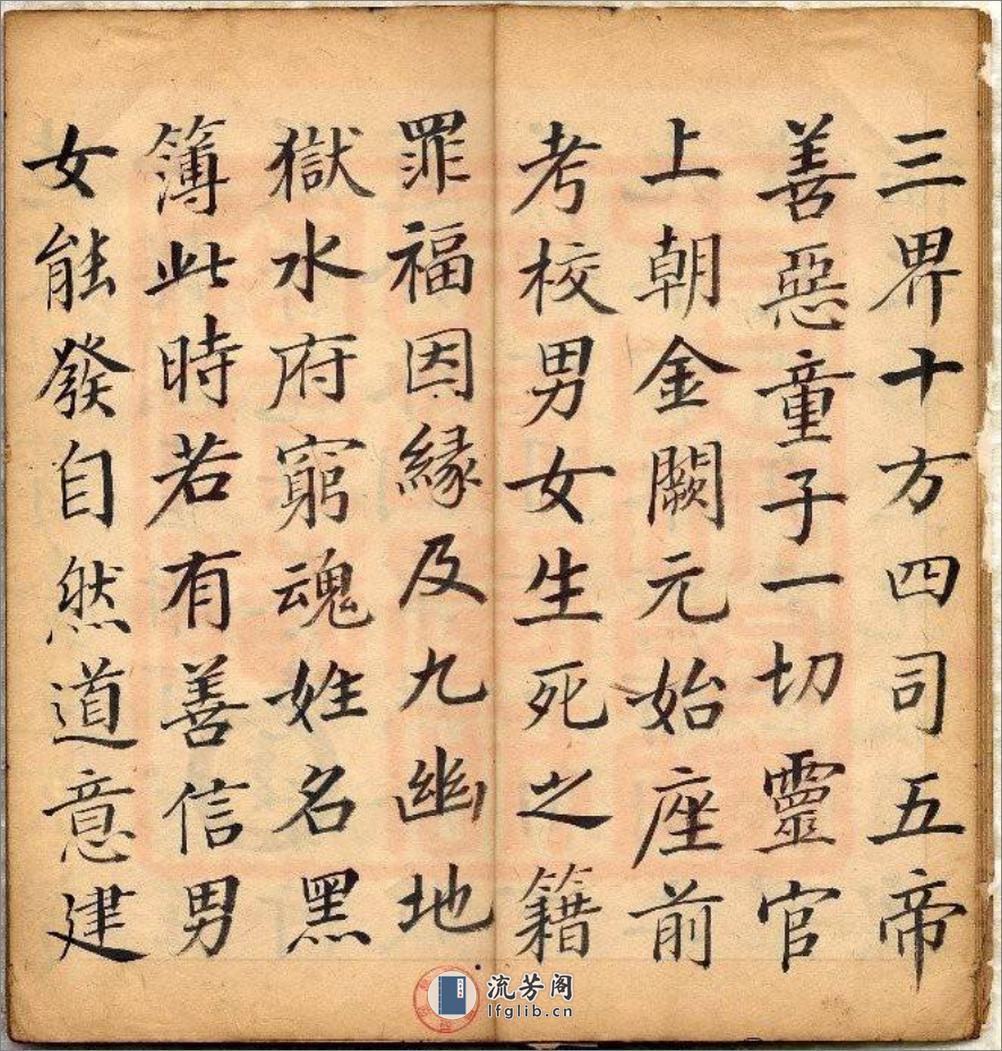 三界十方四司五帝
善惡童子一切靈官
上朝金闕元始座前
考校男女生死之籍
罪福因緣及九幽地
獄水府窮魂姓名黑
簿此時若有善信男
女能發自然道意建
流芳阁
lfglib.cn